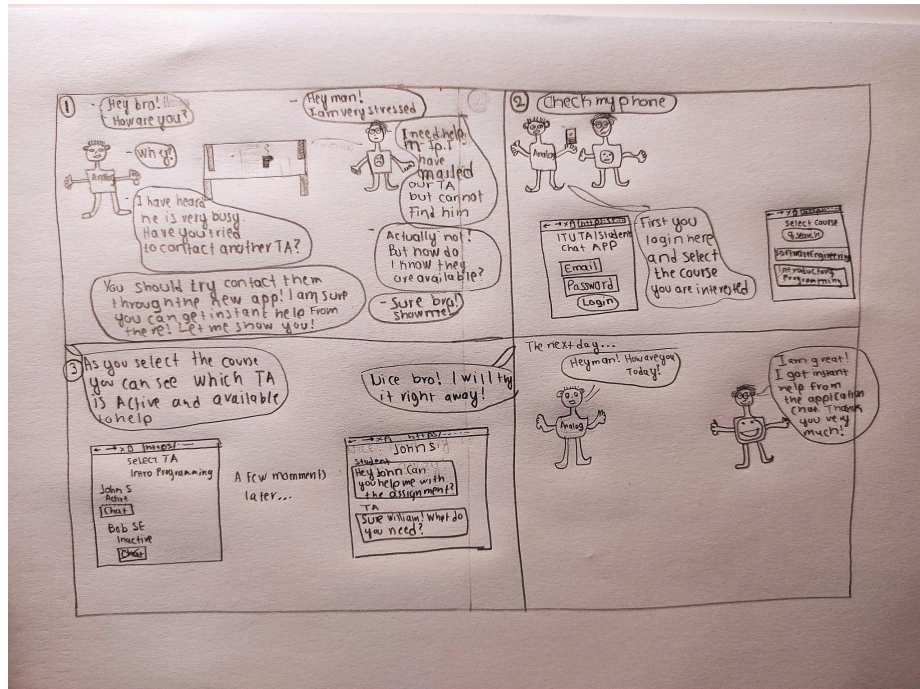 1
- Hey bro!
How are you?
- Hey man!
I am very stressed
- Why?
Analog
I need help
In Ip. I
have
mailed
our TA
but cannot
Find him
- I have heard
he is very busy.
Have you tried
to contact another TA?
- Actually not!
But how do
I know they
are available?
You should try contact them
through the new app! I am sure
you can get instant help from
there! Let me show you!
- Sure bro!
Show me!
2
Check my phone
Analog
First you
login here
and select
the course
you are interested
← → x https://
ITU TA/Student
Chat APP
Email
Password
Login
← → x https://
Select Course
Search
Software Engineering
Introductory
Programming
3
As you select the course
you can see which TA
is Active and available
to help
Nice bro! I will try
it right away!
← → x https/
Select TA
Intro Programming
John S
Active
Chat
Bob SE
Inactive
Chat
A Few momments
later...
← → x https/
John S
Student
Hey John Can
you help me with
the assignment?
TA
Sure William! What do
you need?
The next day...
Hey man! How are you
Today!
Analog
I am great!
I got instant
help from
the application
Chat. Thank
you very
much!